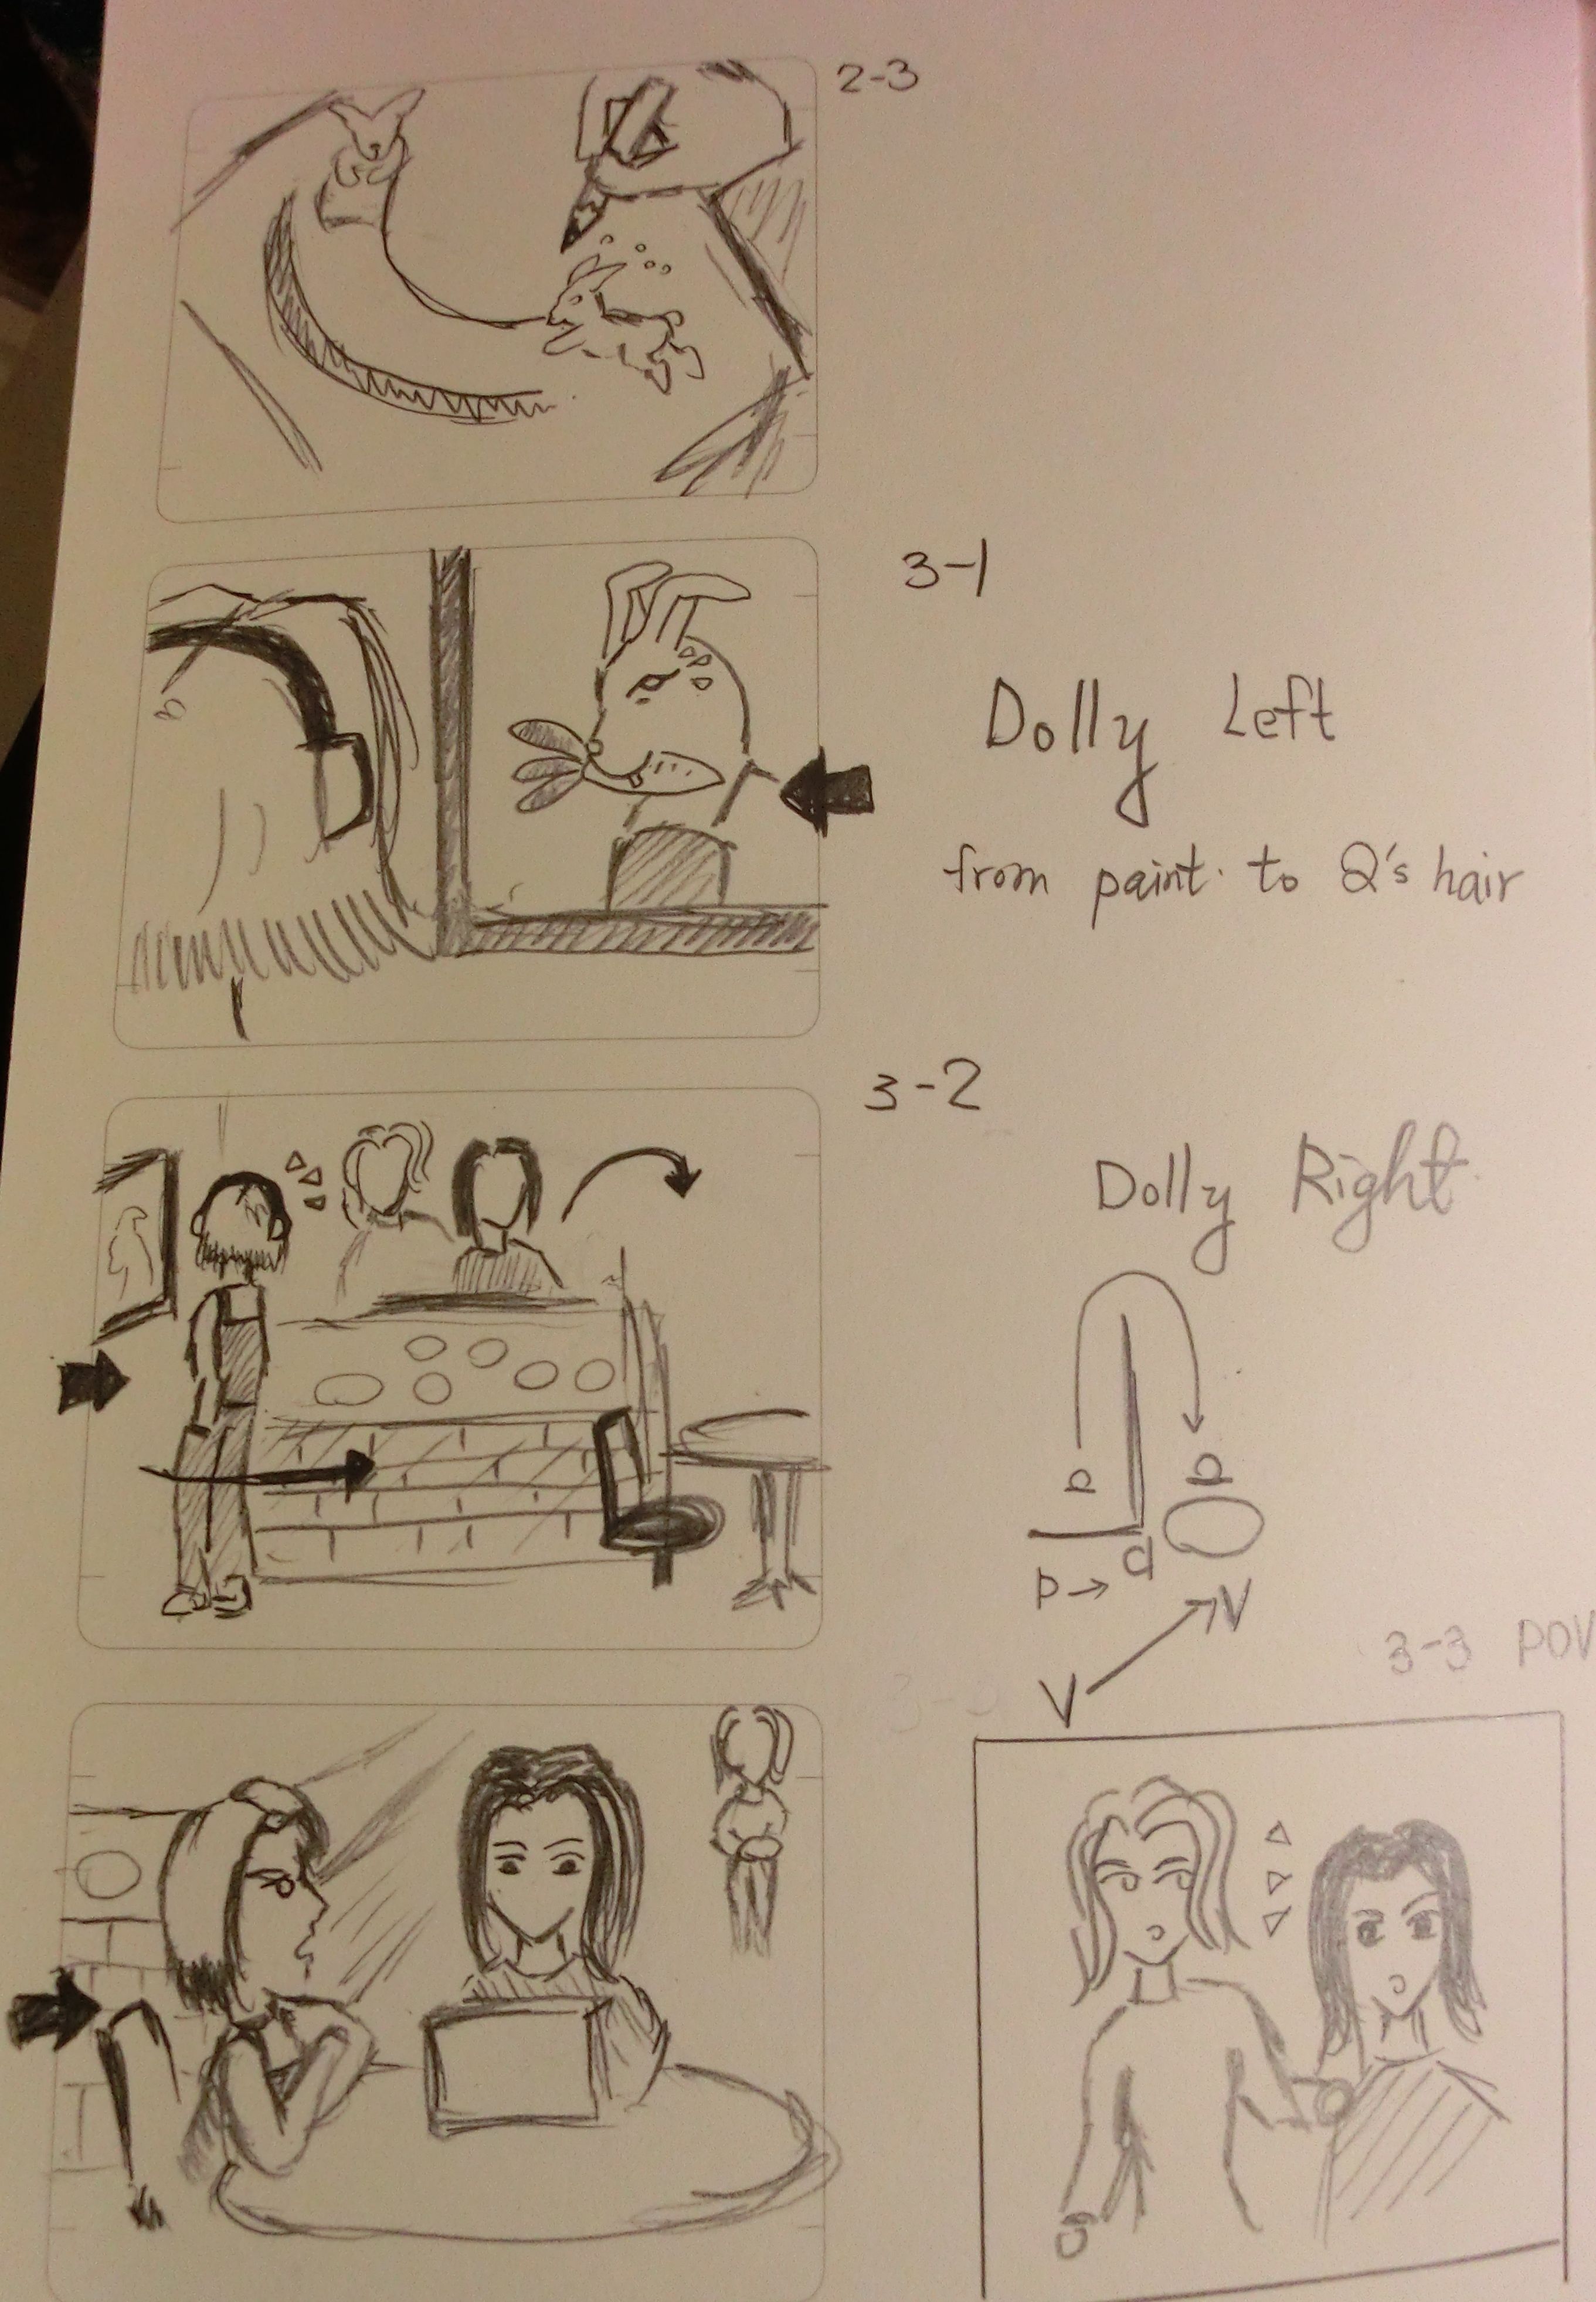 2-3
3-1
Dolly Left
from paint. to Q's hair
3-2
Dolly Right
P→
V
V
3-3
3-3 POV